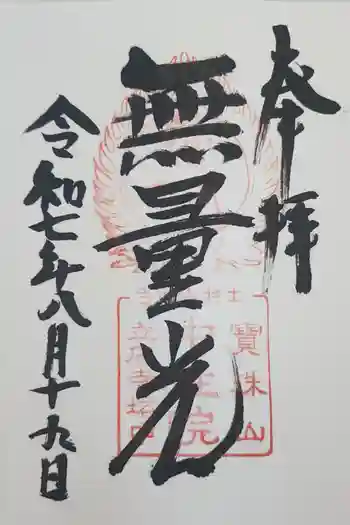 奉拝
無量光
令和七年八月十九日
寶珠山